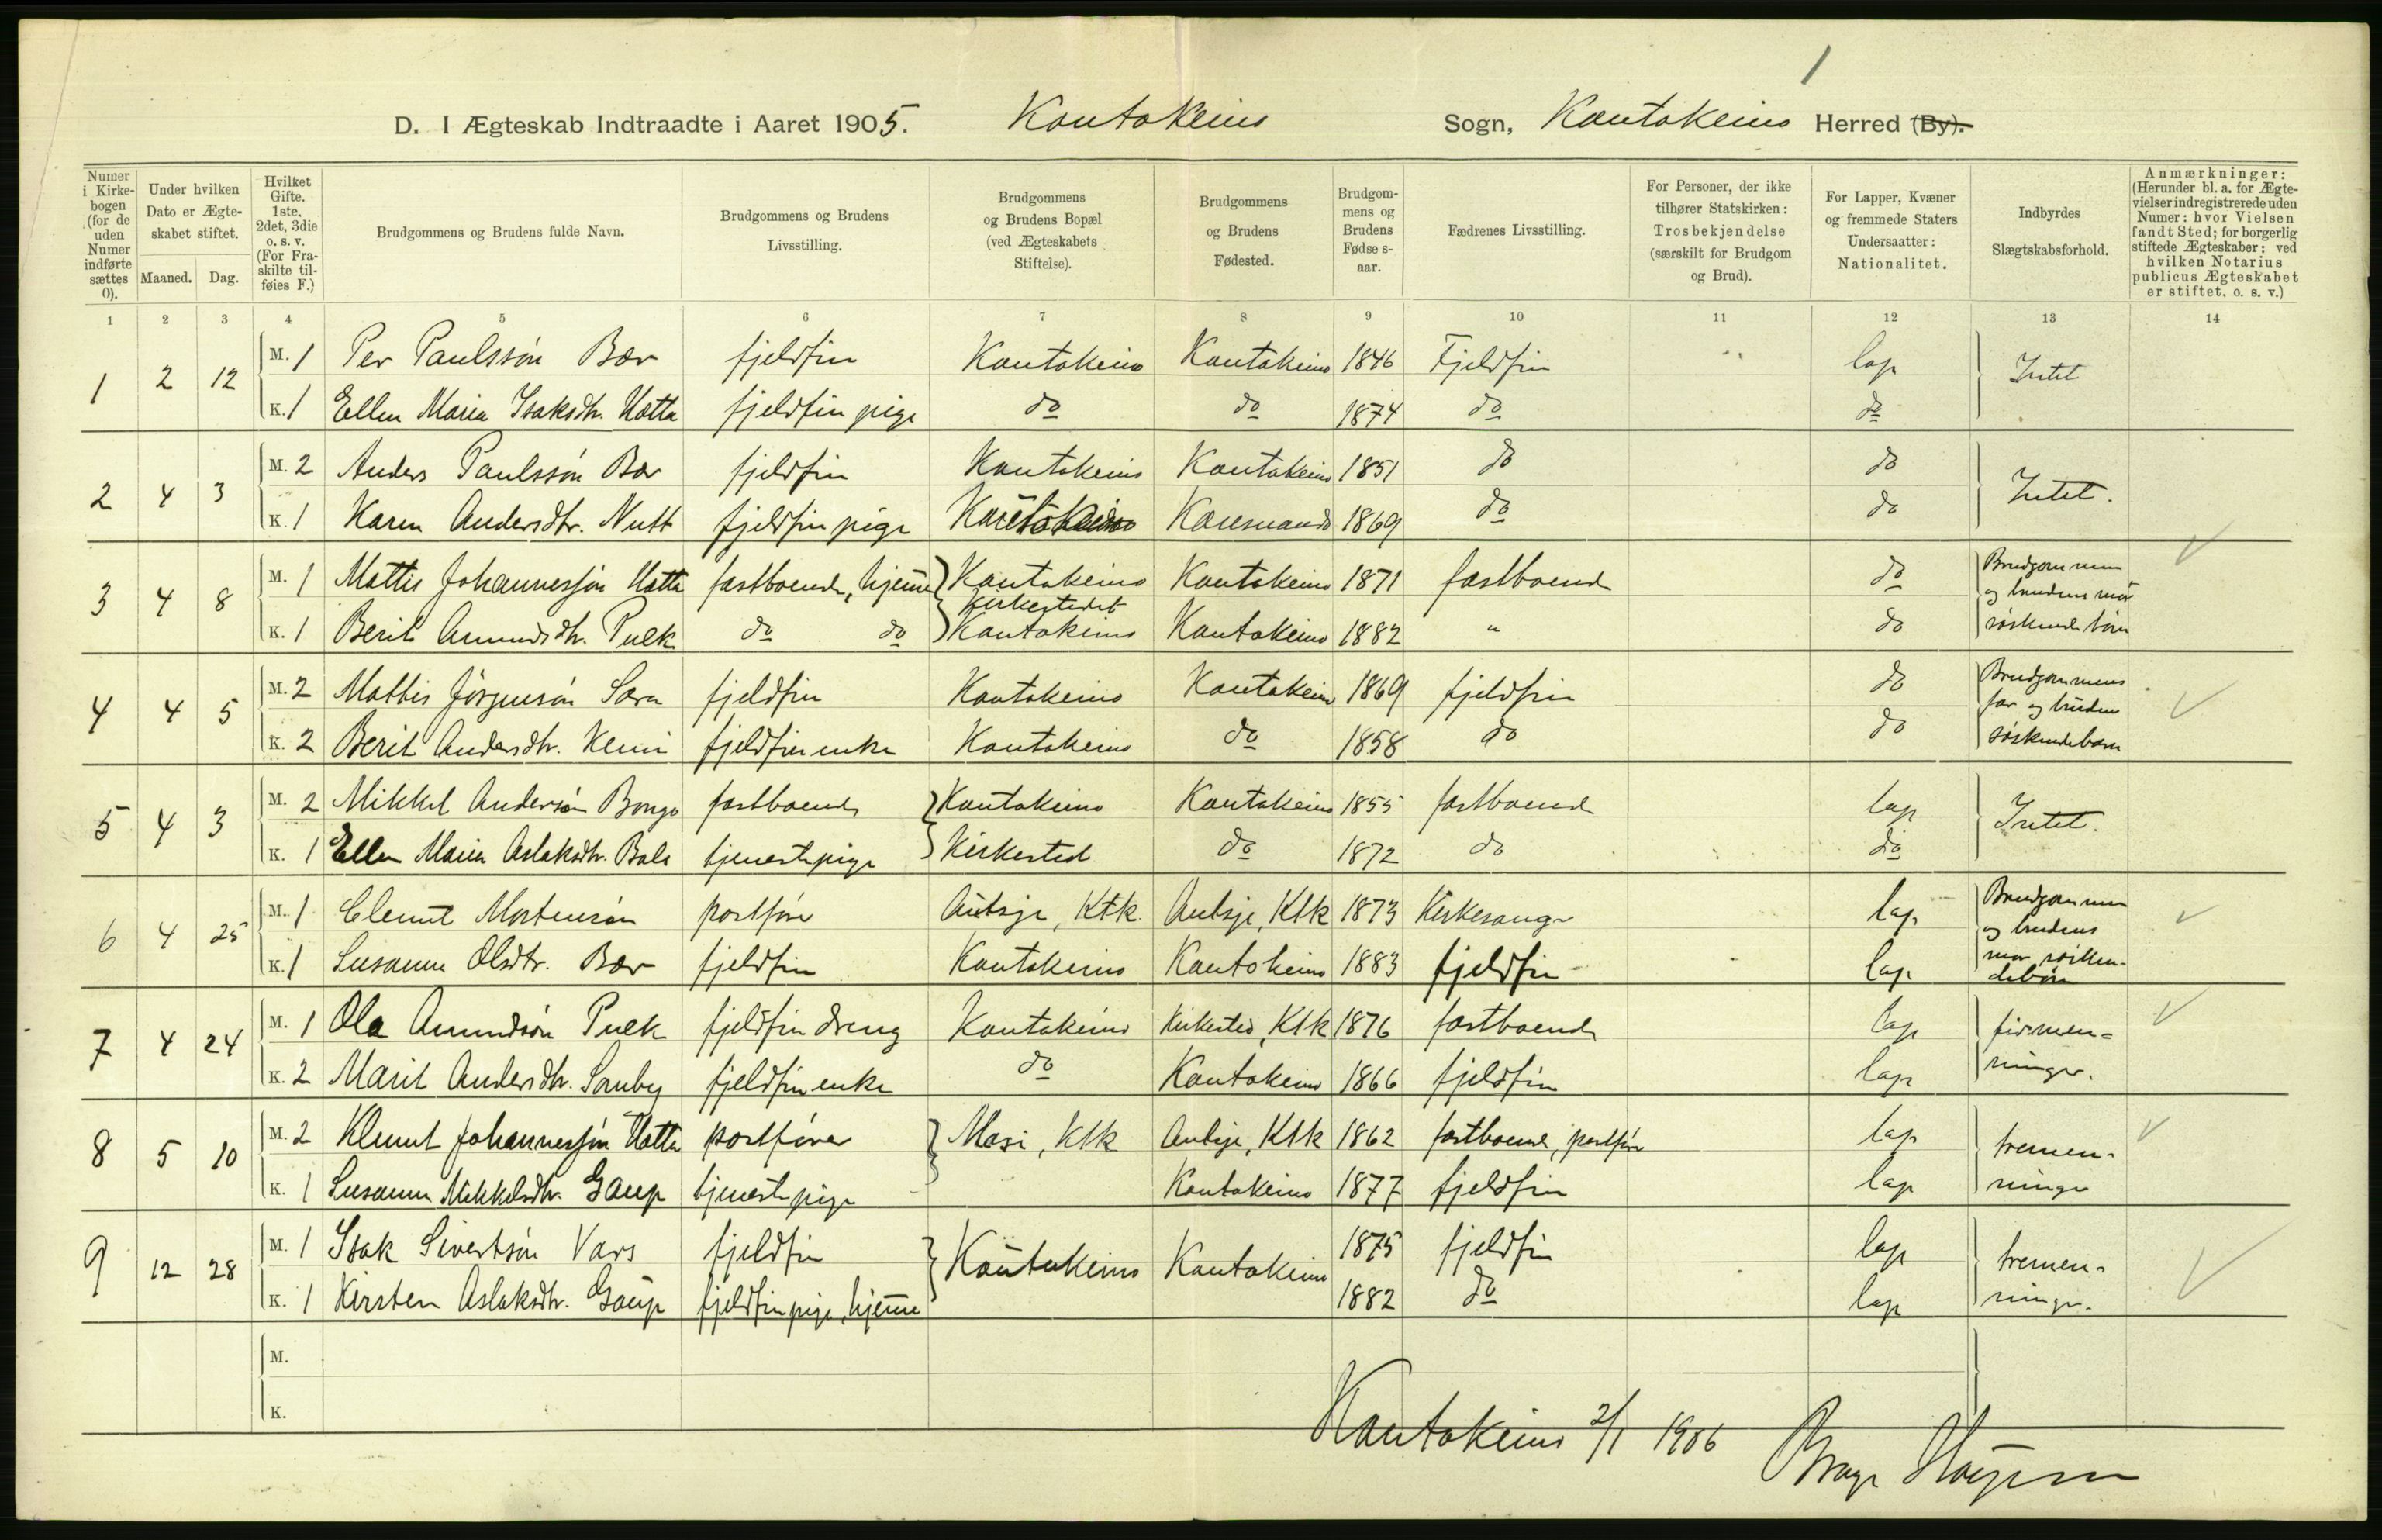 1
D. I Ægteskab Indtraadte i Aaret 1905. Kautokeino Sogn, Kautokeino Herred (By).
Numer i Kirkebogen (for de uden Numer indførte sættes 0).
Under hvilken Dato er Ægteskabet stiftet.
Maaned. Dag.
Hvilket Gifte. 1ste, 2det, 3die o. s. v. (For Fraskilte tilføies F.)
Brudgommens og Brudens fulde Navn.
Brudgommens og Brudens Livsstilling.
Brudgommens og Brudens Bopæl (ved Ægteskabets Stiftelse).
Brudgommens og Brudens Fødested.
Brudgommens og Brudens Fødselsaar.
Fædrenes Livsstilling.
For Personer, der ikke tilhører Statskirken: Trosbekjendelse (særskilt for Brudgom og Brud).
For Lapper, Kvæner og fremmede Staters Undersaatter: Nationalitet.
Indbyrdes Slægtskabsforhold.
Anmærkninger: (Herunder bl. a. for Ægtevielser indregistrerede uden Numer: hvor Vielsen fandt Sted; for borgerlig stiftede Ægteskaber: ved hvilken Notarius publicus Ægteskabet er stiftet, o. s. v.)
1 2 3 4 5 6 7 8 9 10 11 12 13 14
1 2 12 M. 1 Per Paulssön Bær fjeldfin Kautokeino Kautokeino 1846 Fjeldfin lap Intet
K. 1 Ellen Maria Isaksdtr. Hætta fjeldfin pige do do 1874 do do
2 4 3 M. 2 Anders Paulssön Bær fjeldfin Kautokeino Kautokeino 1851 do do Intet.
K. 1 Karen Andersdtr. Nutt fjeldfin pige Kautokeino Karesuando 1869 do do
3 4 8 M. 1 Mattis Johannessön Hætta fastboende, hjemme Kautokeino Kautokeino 1871 fastboende do Brudgommen og brudens mor søskendebörn
Kirkestedet
K. 1 Berit Amundsdtr. Pulk do do Kautokeino Kautokeino 1882 " do
4 4 5 M. 2 Mattis Jörgensön Sara fjeldfin Kautokeino Kautokeino 1869 fjeldfin do Brudgommens far og bruden söskendebörn
K. 2 Berit Andersdtr. Kemi fjeldfin enke Kautokeino do 1858 do do
5 4 3 M. 2 Mikkel Andersön Bongo fastboende Kautokeino Kautokeino 1855 fastboende lap Intet.
K. 1 Ellen Maria Aslaksdtr. Bals tjenestepige Kirkested do 1872 do do
6 4 25 M. 1 Clemet Mortensön postförer Autsje, Ktk. Autsje, Ktk 1873 Kirkesanger lap Brudgommen og brudens mor söskendebörn
K. 1 Susanna Olsdtr. Bær fjeldfin Kautokeino Kautokeino 1883 fjeldfin lap
7 4 24 M. 1 Ola Amundsön Pulk fjeldfin dreng Kautokeino Kirkested, Ktk 1876 fastboende lap firmenninger.
K. 2 Marit Andersdtr. Somby fjeldfin enke do Kautokeino 1866 fjeldfin lap
8 5 10 M. 2 Klemet Johannessön Hætta postförer Masi, Ktk Autsje, Ktk 1862 fastboende, postförer lap tremenninger
K. 1 Susanna Mikkelsdtr. Gaup tjenestepige Kautokeino 1877 fjeldfin lap
9 12 28 M. 1 Isak Sivertsön Vars fjeldfin Kautokeino Kautokeino 1875 fjeldfin lap tremenninger.
K. 1 Kirsten Aslaksdtr. Gaup fjeldfin pige, hjemme 1882 do lap
M.
K.
Kautokeino 2/1 1906